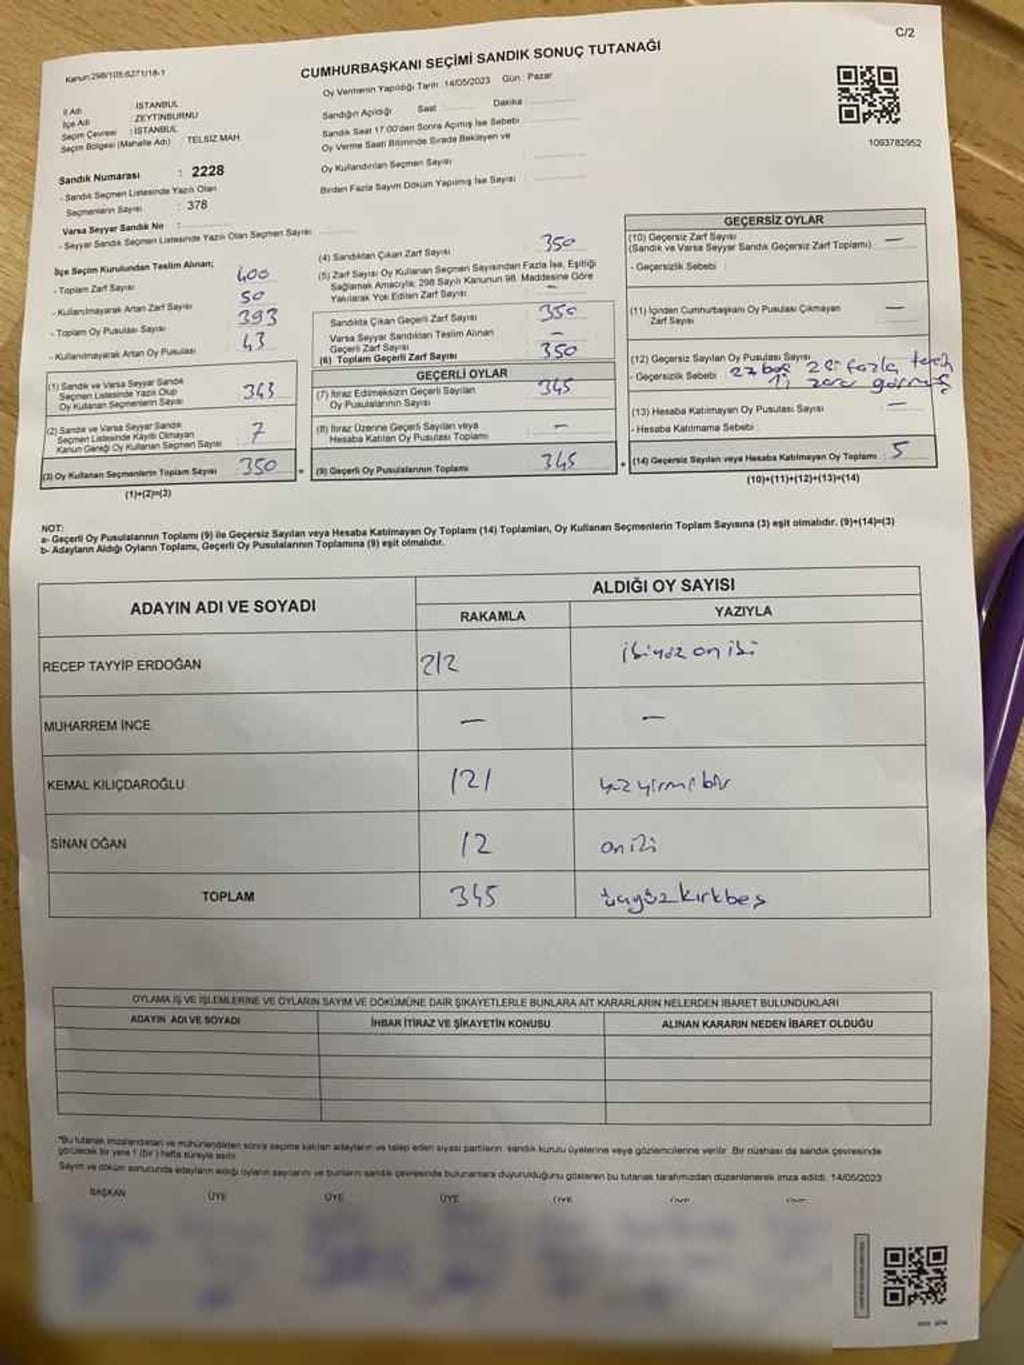 C/2
Kanun:298/105:6271/18-1
CUMHURBAŞKANI SEÇİMİ SANDIK SONUÇ TUTANAĞI
İl Adı : İSTANBUL
İlçe Adı : ZEYTİNBURNU
Seçim Çevresi : İSTANBUL
Seçim Bölgesi (Mahalle Adı) : TELSİZ MAH.
Sandık Numarası : 2228
- Sandık Seçmen Listesinde Yazılı Olan
Seçmenlerin Sayısı : 378
Varsa Seyyar Sandık No :
- Seyyar Sandık Seçmen Listesinde Yazılı Olan Seçmen Sayısı
Oy Vermenin Yapıldığı Tarih :14/05/2023 Gün : Pazar
Sandığın Açıldığı Saat Dakika
Sandık Saat 17:00'den Sonra Açımış İse Sebebi
Oy Verme Saati Bitiminde Sırada Bekleyen ve
Oy Kullandırılan Seçmen Sayısı :
Birden Fazla Sayım Döküm Yapılmış İse Sayısı :
1093782952
İlçe Seçim Kurulundan Teslim Alınan;
- Toplam Zarf Sayısı 400
- Kullanılmayarak Artan Zarf Sayısı 50
- Toplam Oy Pusulası Sayısı 393
- Kullanılmayarak Artan Oy Pusulası 43
(1) Sandık ve Varsa Seyyar Sandık
Seçmen Listesinde Yazılı Olup
Oy Kullanan Seçmenlerin Sayısı 343
(2) Sandık ve Varsa Seyyar Sandık
Seçmen Listesinde Kayıtlı Olmayan
Kanun Gereği Oy Kullanan Seçmen Sayısı 7
(3) Oy Kullanan Seçmenlerin Toplam Sayısı 350
(1)+(2)=(3)
(4) Sandıktan Çıkan Zarf Sayısı 350
(5) Zarf Sayısı Oy Kullanan Seçmen Sayısından Fazla İse, Eşitliği
Sağlamak Amacıyla; 298 Sayılı Kanunun 98. Maddesine Göre
Yakılarak Yok Edilen Zarf Sayısı —
Sandıkta Çıkan Geçerli Zarf Sayısı 350
Varsa Seyyar Sandıktan Teslim Alınan
Geçerli Zarf Sayısı —
(6) Toplam Geçerli Zarf Sayısı 350
GEÇERLİ OYLAR
(7) İtiraz Edilmeksizin Geçerli Sayılan
Oy Pusulalarının Sayısı 345
(8) İtiraz Üzerine Geçerli Sayılan veya
Hesaba Katılan Oy Pusulası Toplamı —
= (9) Geçerli Oy Pusulalarının Toplamı 345
GEÇERSİZ OYLAR
(10) Geçersiz Zarf Sayısı
(Sandık ve Varsa Seyyar Sandık Geçersiz Zarf Toplamı) —
- Geçersizlik Sebebi :
(11) İçinden Cumhurbaşkanı Oy Pusulası Çıkmayan
Zarf Sayısı —
(12) Geçersiz Sayılan Oy Pusulası Sayısı
- Geçersizlik Sebebi fazla tercih
zarar görmüş
(13) Hesaba Katılmayan Oy Pusulası Sayısı —
- Hesaba Katılmama Sebebi :
+ (14) Geçersiz Sayılan veya Hesaba Katılmayan Oy Toplamı : 5
(10)+(11)+(12)+(13)=(14)
NOT:
a- Geçerli Oy Pusulalarının Toplamı (9) ile Geçersiz Sayılan veya Hesaba Katılmayan Oy Toplamı (14) Toplamları, Oy Kullanan Seçmenlerin Toplam Sayısına (3) eşit olmalıdır. (9)+(14)=(3)
b- Adayların Aldığı Oyların Toplamı, Geçerli Oy Pusulalarının Toplamına (9) eşit olmalıdır.
ADAYIN ADI VE SOYADI ALDIĞI OY SAYISI
RAKAMLA YAZIYLA
RECEP TAYYİP ERDOĞAN 212 ikiyüz on iki
MUHARREM İNCE — —
KEMAL KILIÇDAROĞLU 121 yüz yirmi bir
SİNAN OĞAN 12 on iki
TOPLAM 345 üçyüz kırkbeş
OYLAMA İŞ VE İŞLEMLERİNE VE OYLARIN SAYIM VE DÖKÜMÜNE DAİR ŞİKAYETLERLE BUNLARA AİT KARARLARIN NELERDEN İBARET BULUNDUKLARI
ADAYIN ADI VE SOYADI İHBAR İTİRAZ VE ŞİKAYETİN KONUSU ALINAN KARARIN NEDEN İBARET OLDUĞU
*Bu tutanak imzalandıktan ve mühürlendikten sonra seçime katılan adayların ve talep eden siyasi partilerin sandık kurulu üyelerine veya gözlemcilerine verilir. Bir nüshası da sandık çevresinde
görülecek bir yere 1 (bir) hafta süreyle asılır.
Sayım ve döküm sonucunda adayların aldığı oyların sayılarını ve bunların sandık çevresinde bulunanlara duyurulduğunu gösteren bu tutanak tarafımızdan düzenlenerek imza edildi. 14/05/2023
BAŞKAN ÜYE ÜYE ÜYE ÜYE ÜYE ÜYE